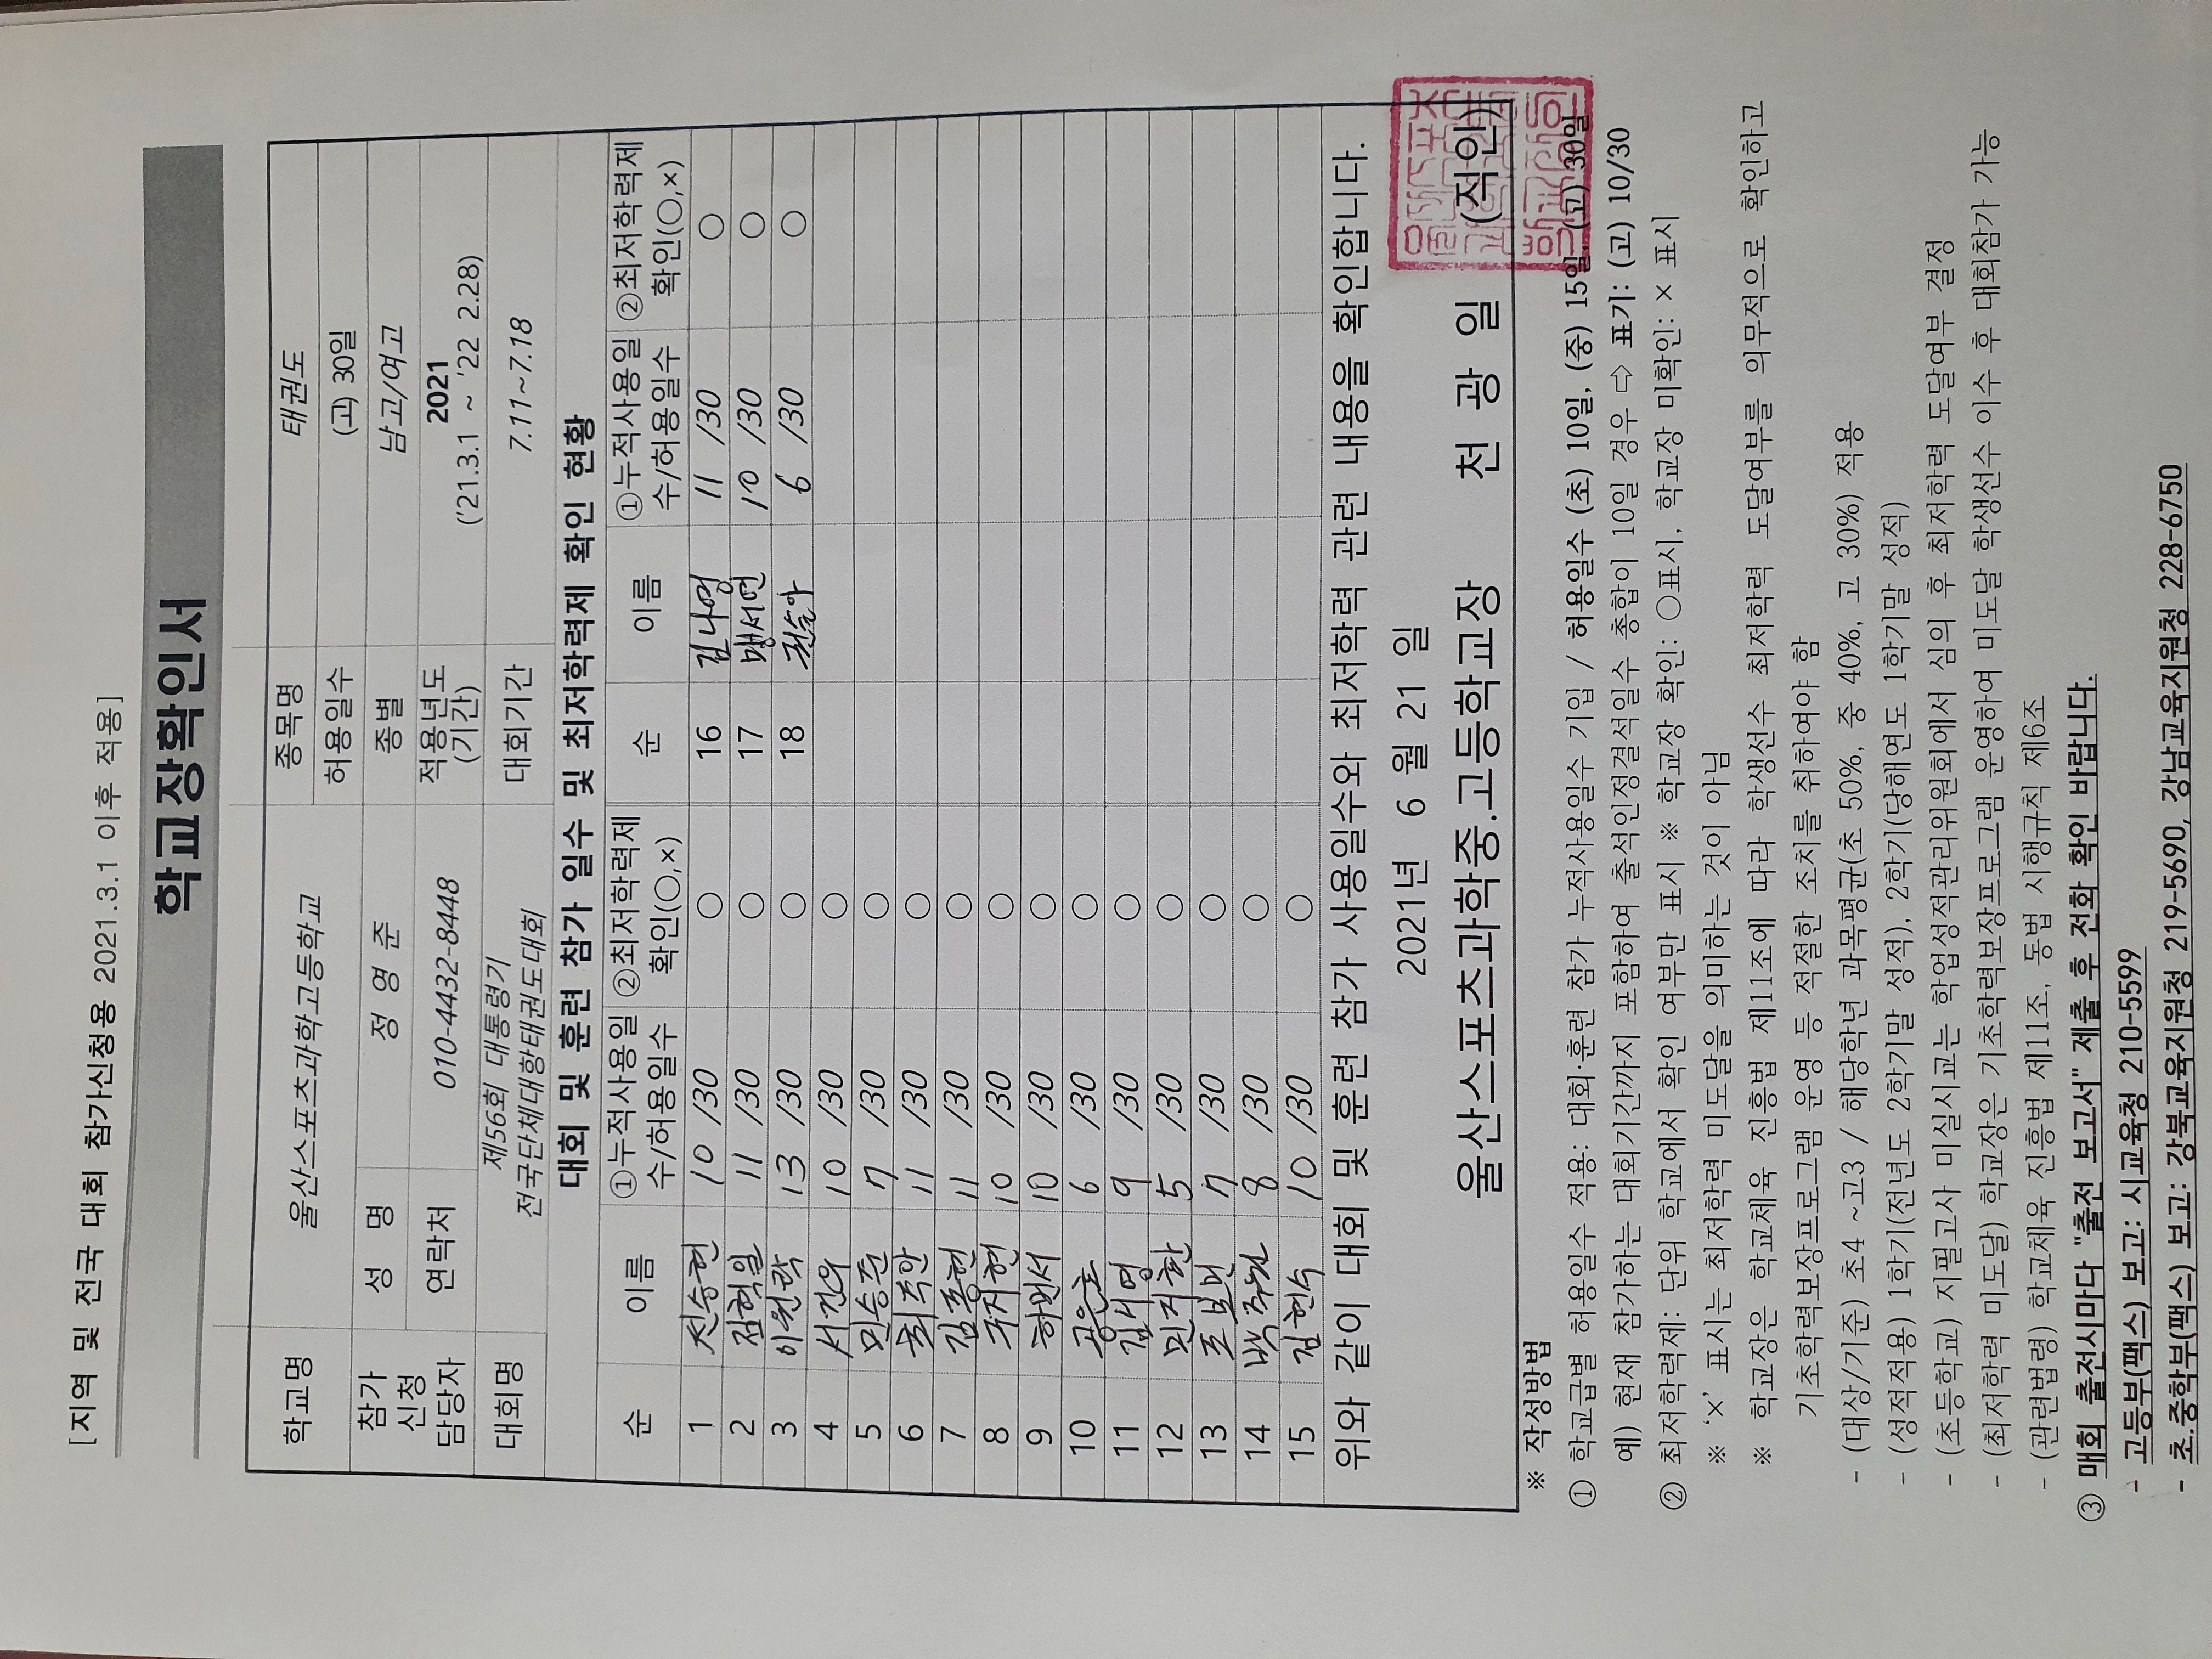 [지역 및 전국 대회 참가신청용 2021.3.1 이후 적용]
학교장확인서
학교명 울산스포츠과학고등학교 종목명 태권도
허용일수 (고) 30일
참가 신청 담당자 성 명 정 영 준 종별 남고/여고
연락처 010-4432-8448 적용년도 (기간) 2021 ('21.3.1 ~ '22 2.28)
대회명 제56회 대통령기 전국단체대항태권도대회 대회기간 7.11~7.18
대회 및 훈련 참가 일수 및 최저학력제 확인 현황
순 이름 ①누적사용일수/허용일수 ②최저학력제 확인(○,×) 순 이름 ①누적사용일수/허용일수 ②최저학력제 확인(○,×)
1 진승현 10 /30 ○ 16 김나영 11 /30 ○
2 김혁일 11 /30 ○ 17 맹서연 10 /30 ○
3 이원락 13 /30 ○ 18 권슬아 6 /30 ○
4 서건우 10 /30 ○
5 민승준 7 /30 ○
6 최주안 11 /30 ○
7 김홍현 11 /30 ○
8 국지현 10 /30 ○
9 하병서 10 /30 ○
10 6 /30 ○
11 김시영 9 /30 ○
12 민지환 5 /30 ○
13 조보빈 7 /30 ○
14 백주원 8 /30 ○
15 김현식 10 /30 ○
위와 같이 대회 및 훈련 참가 사용일수와 최저학력 관련 내용을 확인합니다.
2021년 6 월 21 일
울산스포츠과학중.고등학교장 천 광 일 (직인)
※ 작성방법
① 학교급별 허용일수 적용: 대회·훈련 참가 누적사용일수 기입 / 허용일수 (초) 10일, (중) 15일, (고) 30일
예) 현재 참가하는 대회기간까지 포함하여 출석인정결석일수 총합이 10일 경우 ⇨ 표기: (고) 10/30
② 최저학력제: 단위 학교에서 확인 여부만 표시 ※ 학교장 확인: ○표시, 학교장 미확인: × 표시
※ '×' 표시는 최저학력 미도달을 의미하는 것이 아님
※ 학교장은 학교체육 진흥법 제11조에 따라 학생선수 최저학력 도달여부를 의무적으로 확인하고
기초학력보장프로그램 운영 등 적절한 조치를 취하여야 함
- (대상/기준) 초4 ~고3 / 해당학년 과목평균(초 50%, 중 40%, 고 30%) 적용
- (성적적용) 1학기(전년도 2학기말 성적), 2학기(당해연도 1학기말 성적)
- (초등학교) 지필고사 미실시교는 학업성적관리위원회에서 심의 후 최저학력 도달여부 결정
- (최저학력 미도달) 학교장은 기초학력보장프로그램 운영하여 미도달 학생선수 이수 후 대회참가 가능
- (관련법령) 학교체육 진흥법 제11조, 동법 시행규칙 제6조
③ 매회 출전시마다 "출전 보고서" 제출 후 전화 확인 바랍니다.
- 고등부(팩스) 보고: 시교육청 210-5599
- 초.중학부(팩스) 보고: 강북교육지원청 219-5690, 강남교육지원청 228-6750